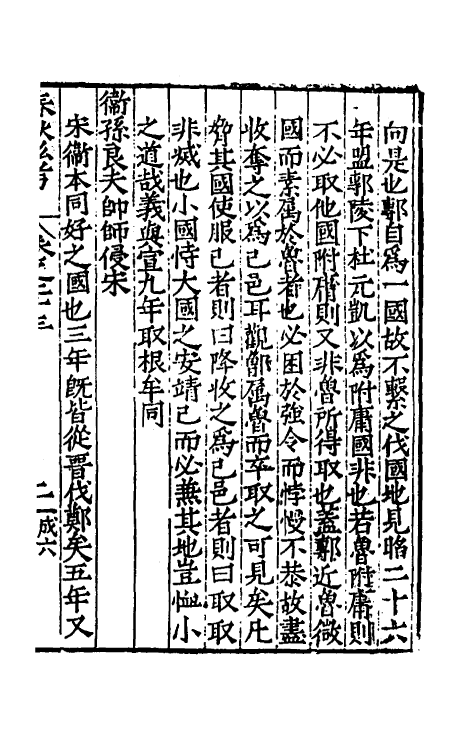 向是也鄟自爲一國故不繫之伐國地見昭二十六
年盟鄟陵下杜元凱以爲附庸國非也若魯附庸則
不必取他國附庸則又非魯所得取也蓋鄟近魯微
國而素属於魯者也必困於強令而悖慢不恭故盡
收奪之以爲己邑耳觀鄫属魯而卒取之可見矣凡
脅其國使服己者則曰降收之爲己邑者則曰取取
非㓕也小國恃大國之安靖己而必兼其地豈恤小
之道哉義與宣九年取根牟同
衞孫良夫帥師侵宋
宋衞本同好之國也三年旣皆從晋伐鄭矣五年又
二 成六